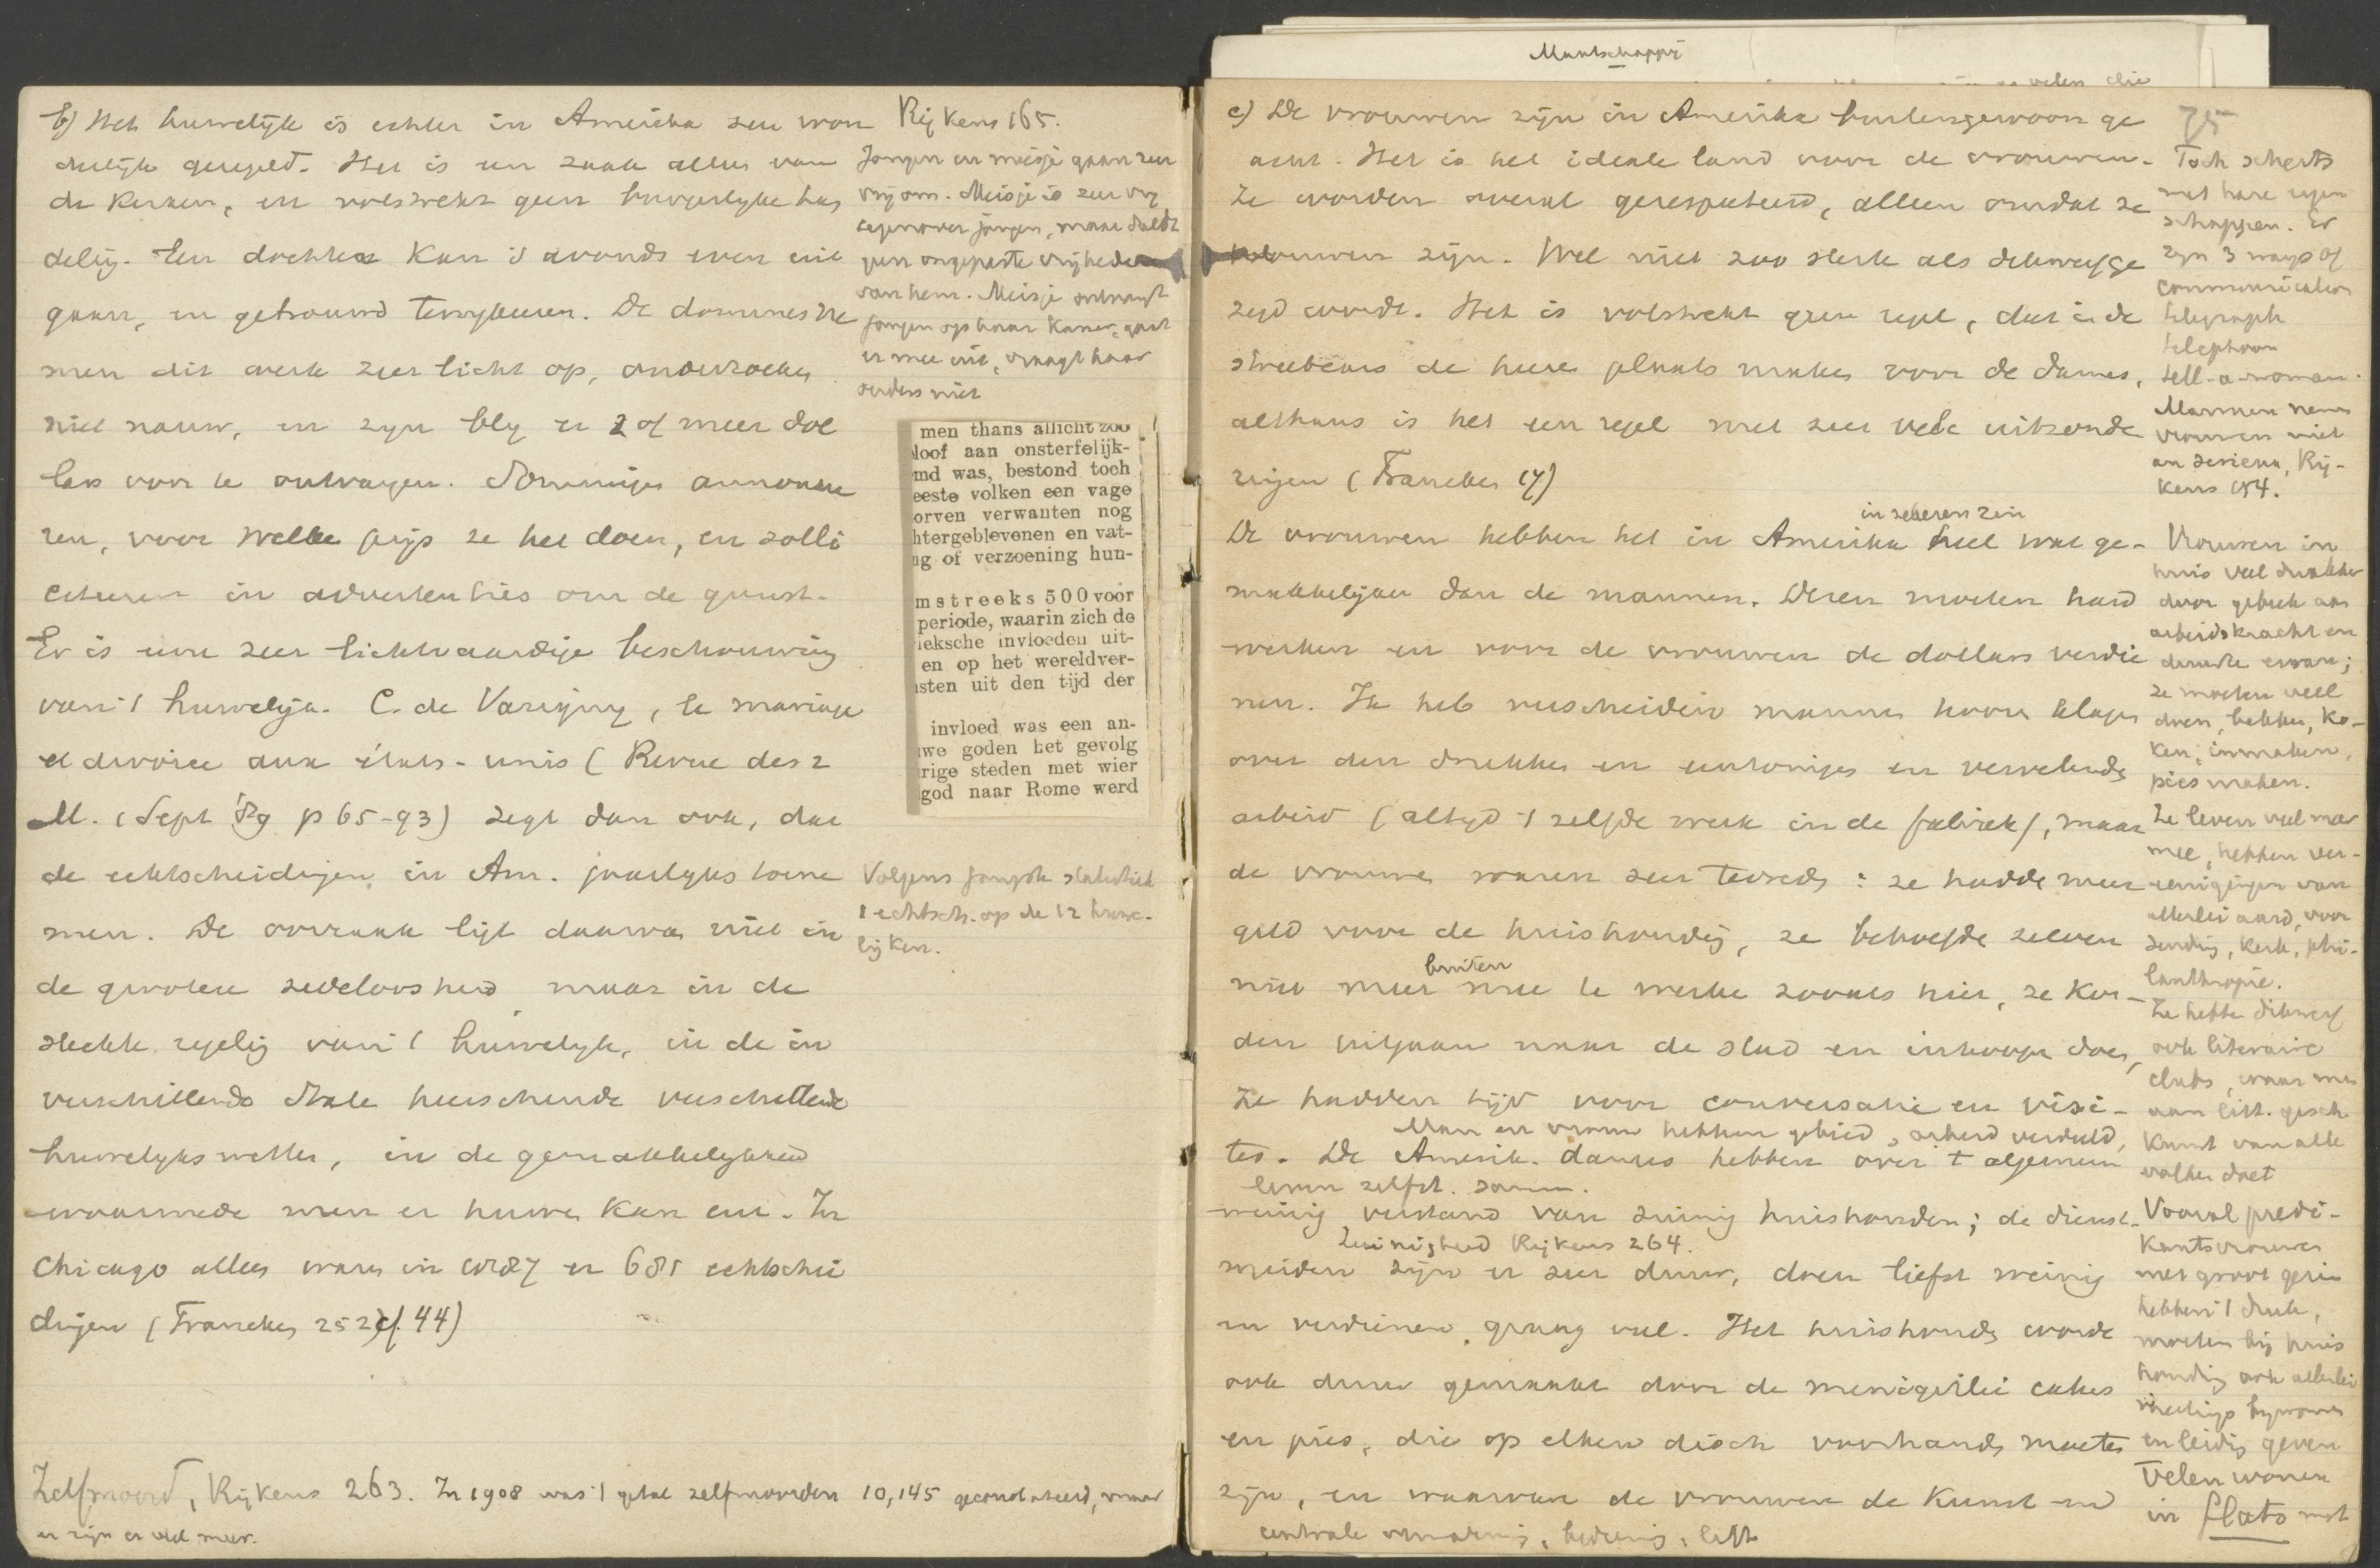 b) Het huwelijk is echter in Amerika zeer won
derlijk geregeld. Het is een zaak alleen van
de kerken, en volstrekt geen burgerlijke han
deling. Een dochter kan 's avonds even uit
gaan, en getrouwd terugkeeren. De dominés ne
men dit werk zeer licht op, onderzoeken
niet nauw, en zijn blij er 2 of meer dol
lars voor te ontvangen. Sommigen annonce
ren, voor welke prijs ze het doen, en solli
citeeren in advertenties om de gunst.
Er is eene zeer lichtvaardige beschouwing
van 't huwelijk. C. de Varigny, le mariage
et divorce aux états-unis (Revue des 2
M. (Sept '89 p 65-93) zegt dan ook, dat
de echtscheidingen in Am. jaarlijks toene
men. De oorzaak ligt daarvan niet in
de grootere zedeloosheid maar in de
slechte regeling van 't huwelijk, in de in
verschillende Staten heerschende verschillende
huwelijkswetten, in de gemakkelijkheid
waarmede men er huwen kan enz. In
Chicago alleen waren in 1887 er 681 echtschei
dingen (Francken 252 cf. 44)
Zelfmoord, Rijkens 263. In 1908 was 't getal zelfmoorden 10,145 geconstateerd, maar
er zijn er veel meer.
Rijkens 165.
Jongen en meisje gaan zeer
vrij om. Meisje is zeer vrij
tegenover jongen, maar duldt
geen ongepaste vrijheden
van hem. Meisje ontvangt
jongen op haar kamer, gaat
er mee uit, vraagt haar
ouders niet
men thans allicht zoo
loof aan onsterfelijk-
md was, bestond toch
eeste volken een vage
orven verwanten nog
htergeblevenen en vat-
ng of verzoening hun-
mstreeks 500 voor
periode, waarin zich de
ieksche invloeden uit-
en op het wereldver-
sten uit den tijd der
invloed was een an-
we goden het gevolg
rige steden met wier
god naar Rome werd
Volgens jongste statistiek
1 echtsch. op de 12 huwe-
lijken.
Maatschappij
velen die
c) De vrouwen zijn in Amerika buitengewoon ge
acht. Het is het ideale land voor de vrouwen.
Ze worden overal gerespecteerd, alleen omdat ze
vrouwen zijn. Wel niet zoo sterk als dikwijls ge
zegd wordt. Het is volstrekt geen regel, dat in de
streetcars de heeren plaats maken voor de dames,
althans is het een regel met zeer vele uitzonde
ringen (Francken 17)
De vrouwen hebben het in Amerika in zekeren zin heel wat ge-
makkelijker dan de mannen. Dezen moeten hard
werken en voor de vrouwen de dollars verdie
nen. Ik heb verscheiden mannen hooren klagen
over den drukken en eentonigen en vervelenden
arbeid (altijd 't zelfde werk in de fabriek), maar
de vrouwen waren zeer tevreden: ze hadden meer
geld voor de huishouding, ze behoefden zelven
niet meer buiten mee te werken zooals hier, ze kon-
den uitgaan naar de stad en inkoopen doen,
Ze hadden tijd voor conversatie en visi-
Man en vrouw hebben gebied, arbeid verdeeld,
tes. De Amerik. dames hebben over 't algemeen
leven zelfst. samen.
weinig verstand van zuinig huishouden; de dienst-
Zuinigheid Rijkens 264.
meiden zijn er zeer duur, doen liefst weinig
en verdienen graag veel. Het huishouden wordt
ook duur gemaakt door de menigerlei cakes
en pies, die op elken disch voorhanden moeten
zijn, en waarvan de vrouwen de kunst ver
centrale verwarming, bediening, lift
75
Toch scherts
met hare eigen
schappen. Er
zijn 3 ways of
communication
telegraph
telephoon
tell-a-woman.
Mannen nemen
vrouwen niet
au serieux, Rij-
kens 154.
Vrouwen in
huis veel drukker
door gebrek aan
arbeidskracht en
dienstb.;
ze moeten veel
doen, bakken, ko-
ken, inmaken,
pies maken.
Ze leven veel meer
mee, hebben ver-
eenigingen van
allerlei aard, voor
zending, kerk, phi-
lanthropie.
Ze hebben dikwijls
ook literaire
clubs, waar men
aan litt. gesch.
kunst van alle
volken doet
Vooral predi-
kantsvrouwen
met groot gezin
hebben 't druk,
moeten bij huis
houding ook allerlei
meetings bijwonen
en leiding geven
Velen wonen
in flats met